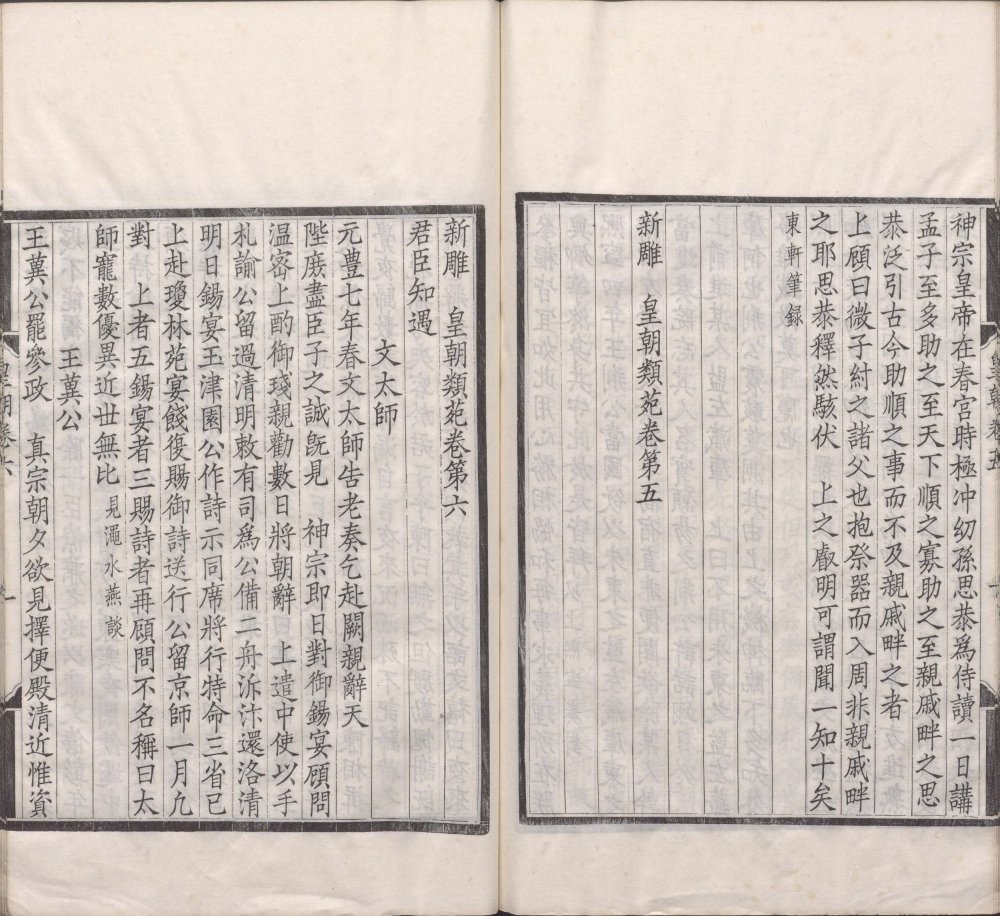 神宗皇帝在春宮時極冲幼孫思恭爲侍讀一日講
孟子至多助之至天下順之寡助之至親戚畔之思
恭泛引古今助順之事而不及親戚畔之者
上顧曰微子紂之諸父也抱祭器而入周非親戚畔
之耶思恭釋然駭伏　上之叡明可謂聞一知十矣
東軒筆録
新雕　皇朝類苑卷第五
新雕　皇朝類苑卷第六
君臣知遇
文太師
元豊七年春文太師告老奏乞赴闕親辭天
陛庶盡臣子之誠旣見　神宗即日對御錫宴顧問
温宻上酌御琖親勸數日將朝辭　上遣中使以手
札諭公留過清明敕有司爲公備二舟泝汴還洛清
明日錫宴玉津園公作詩示同席將行特命三省已
上赴瓊林苑宴餞復賜御詩送行公留京師一月凢
對　上者五錫宴者三賜詩者再顧問不名稱曰太
師寵數優異近丗無比　見澠水燕談
王兾公
王兾公罷參政　真宗朝夕欲見擇便殿清近惟資